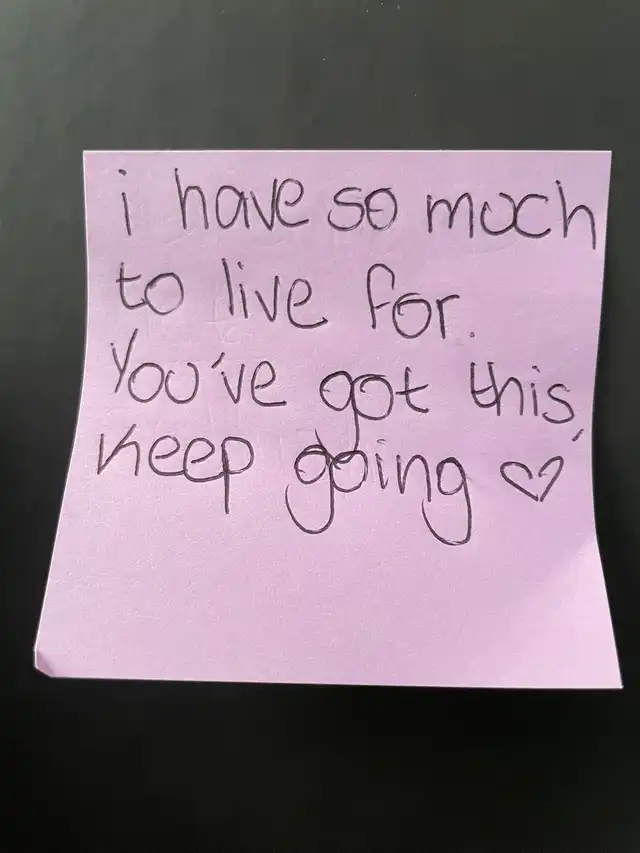 i have so much
to live for.
You've got this,
Keep going ♡